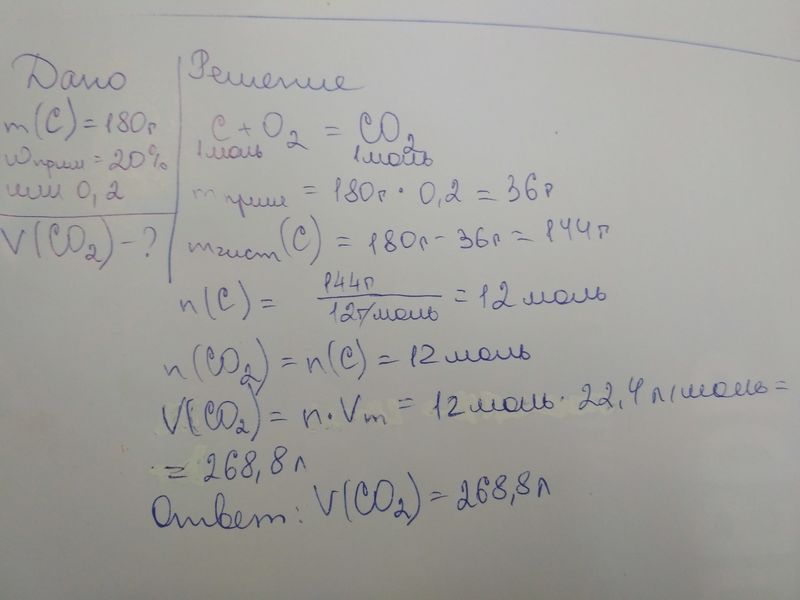 Дано
m(C) = 180г
wприм = 20%
или 0,2
V(CO2) - ?
Решение
C + O2 = CO2
1моль 1моль
mприм = 180г · 0,2 = 36г
mчист(C) = 180г - 36г = 144г
n(C) = 144г / 12г/моль = 12 моль
n(CO2) = n(C) = 12 моль
V(CO2) = n · Vm = 12 моль · 22,4 л/моль =
= 268,8л
Ответ: V(CO2) = 268,8л